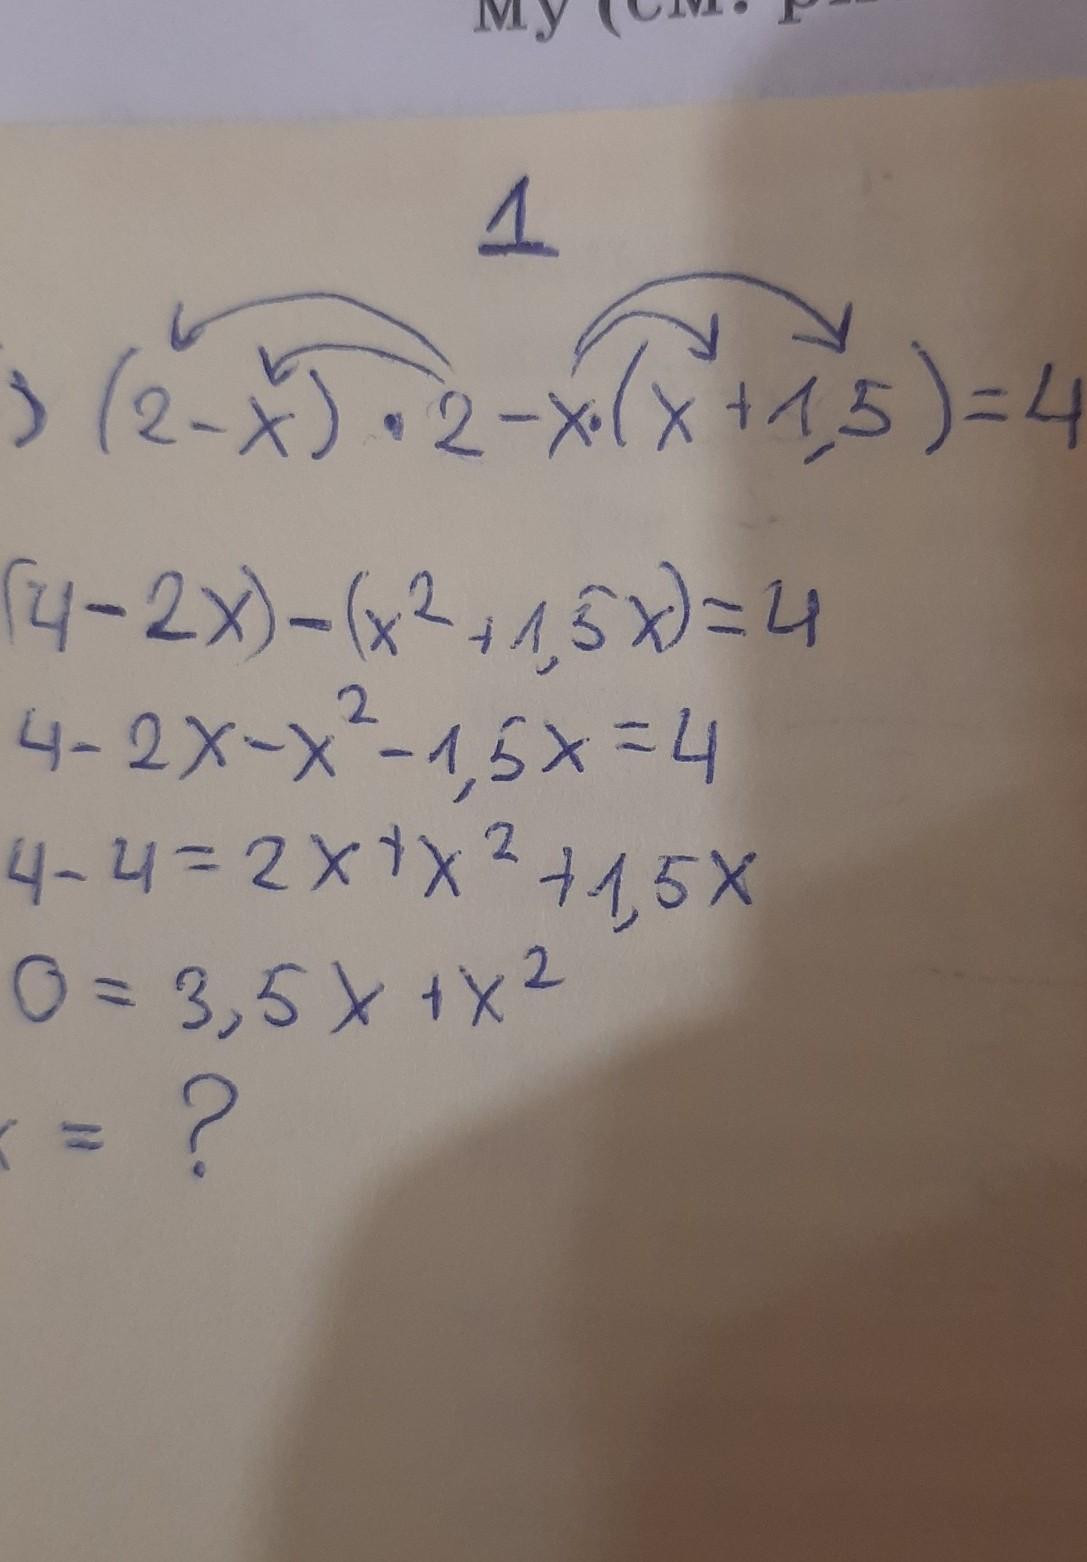 му (см.
1
) (2-x)·2-x·(x+1,5)=4
(4-2x)-(x²+1,5x)=4
4-2x-x²-1,5x=4
4-4=2x+x²+1,5x
0=3,5x+x²
x=?